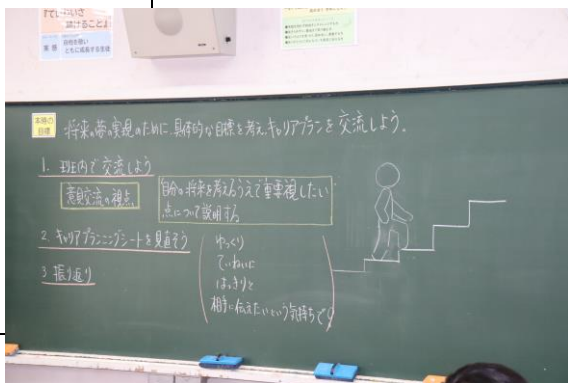 聴けること』
業 態
目的を整い
ともに成長する生徒
本時の
目標
将来の夢の実現のために、具体的な目標を考え、キャリアプランを交流しよう。
1. 班内で交流しよう
意見交流の視点
自分の将来を考えるうえで重要視したい
点について説明する
2. キャリアプランニングシートを見直そう
3 振り返り
ゆっくり
ていねいに
はっきりと
相手に伝えたいという気持ちで!